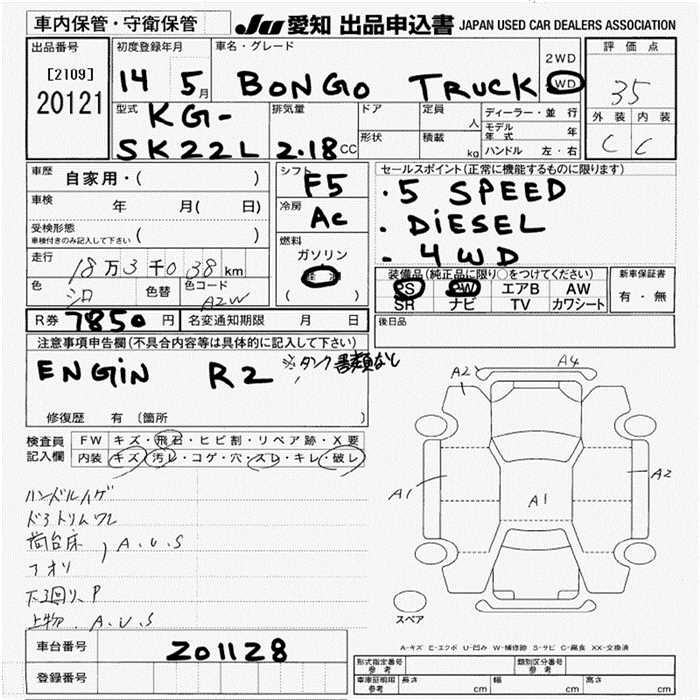 車内保管・守衛保管 JU 愛知 出品申込書 JAPAN USED CAR DEALERS ASSOCIATION
出品番号 初度登録年月 車名・グレード 2WD 評価点
[2109] 14 5月 BONGO TRUCK 4WD 35
20121 型式 排気量 ドア 定員 人 ディーラー・並行 外装 内装
KG- モデル年式 年 C C
SK22L 2.18CC 形状 積載 kg ハンドル 左・右
車歴 自家用・( ) シフト F5 セールスポイント(正常に機能するものに限ります)
車検 年 月( 日) 冷房 AC ・5 SPEED
受検形態 ( ) ・DiESEL
車検付きのみ記入して下さい 燃料 ・4WD
走行 18万3千038km ガソリン 装備品(純正品に限り○をつけてください) 新車保証書
色 シロ 色替 色コード A2W ( ) PS PW エアB AW 有・無
SR ナビ TV カワシート
R券 7850円 名変通知期限 月 日 後日品
注意事項申告欄(不具合内容等は具体的に記入して下さい)
ENGiN R2 ※タンク書類なし
修復歴 有 〔箇所 〕
検査員 FW キズ・飛石・ヒビ割・リペア跡・X要
記入欄 内装 キズ・汚レ・コゲ・穴・スレ・キレ・破レ
A2 A4
A1 A1 A2
ハンドルイゲ
ドアトリムワレ
荷台床
アオリ , A.U.S
下回り.P
上物.A.U.S
スペア
A-キズ E-エクボ U-凹み W-補修跡 S-サビ C-腐食 XX-交換済
車台番号 201128
登録番号
形式指定番号 参考 類別区分番号 参考
車庫証明用 参考 長さ cm 幅 cm 高さ cm